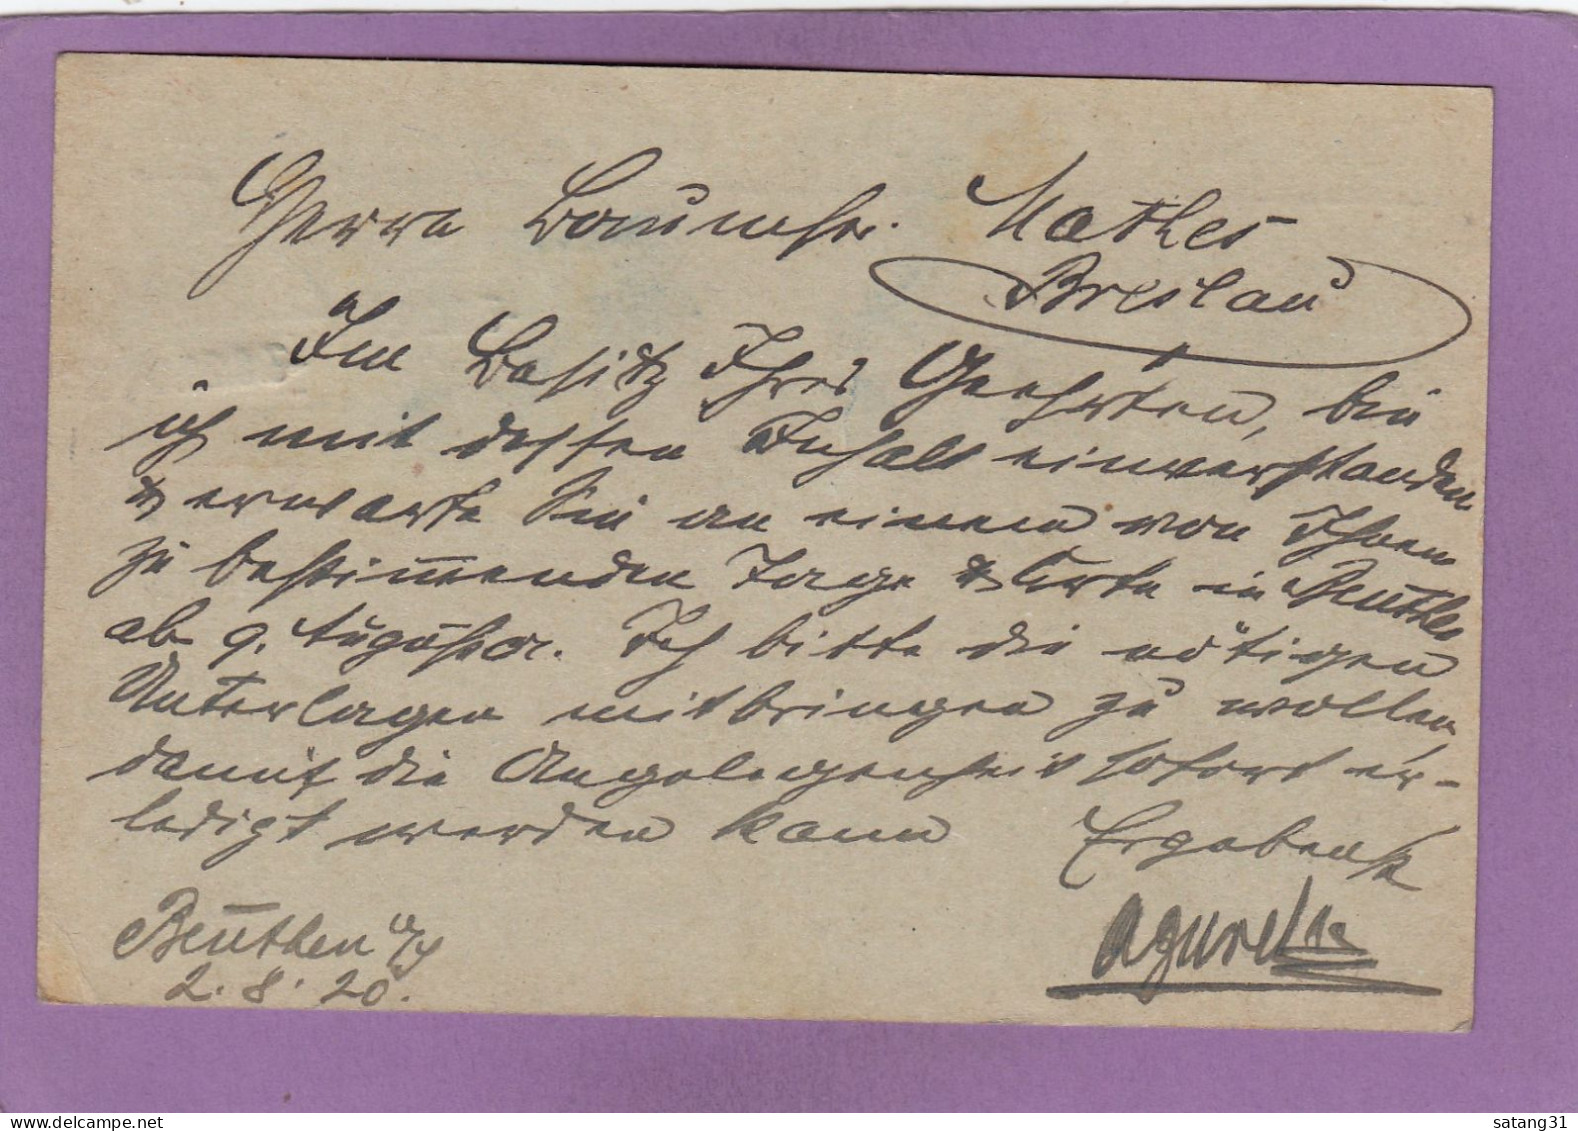 Herrn Baumstr. Mathes
Breslau
Im Besitz Ihres Geehrten, bin
ich mit dessen Inhalt einverstanden
& erwarte Sie an einem von Ihnen
zu bestimmenden Tage & Orte in Beuthen
ab 9. August cr. Ich bitte die nötigen
Unterlagen mitbringen zu wollen,
damit die Angelegenheit sofort er-
ledigt werden kann Ergebenst
Beuthen o/s
2. 8. 20.
satang31